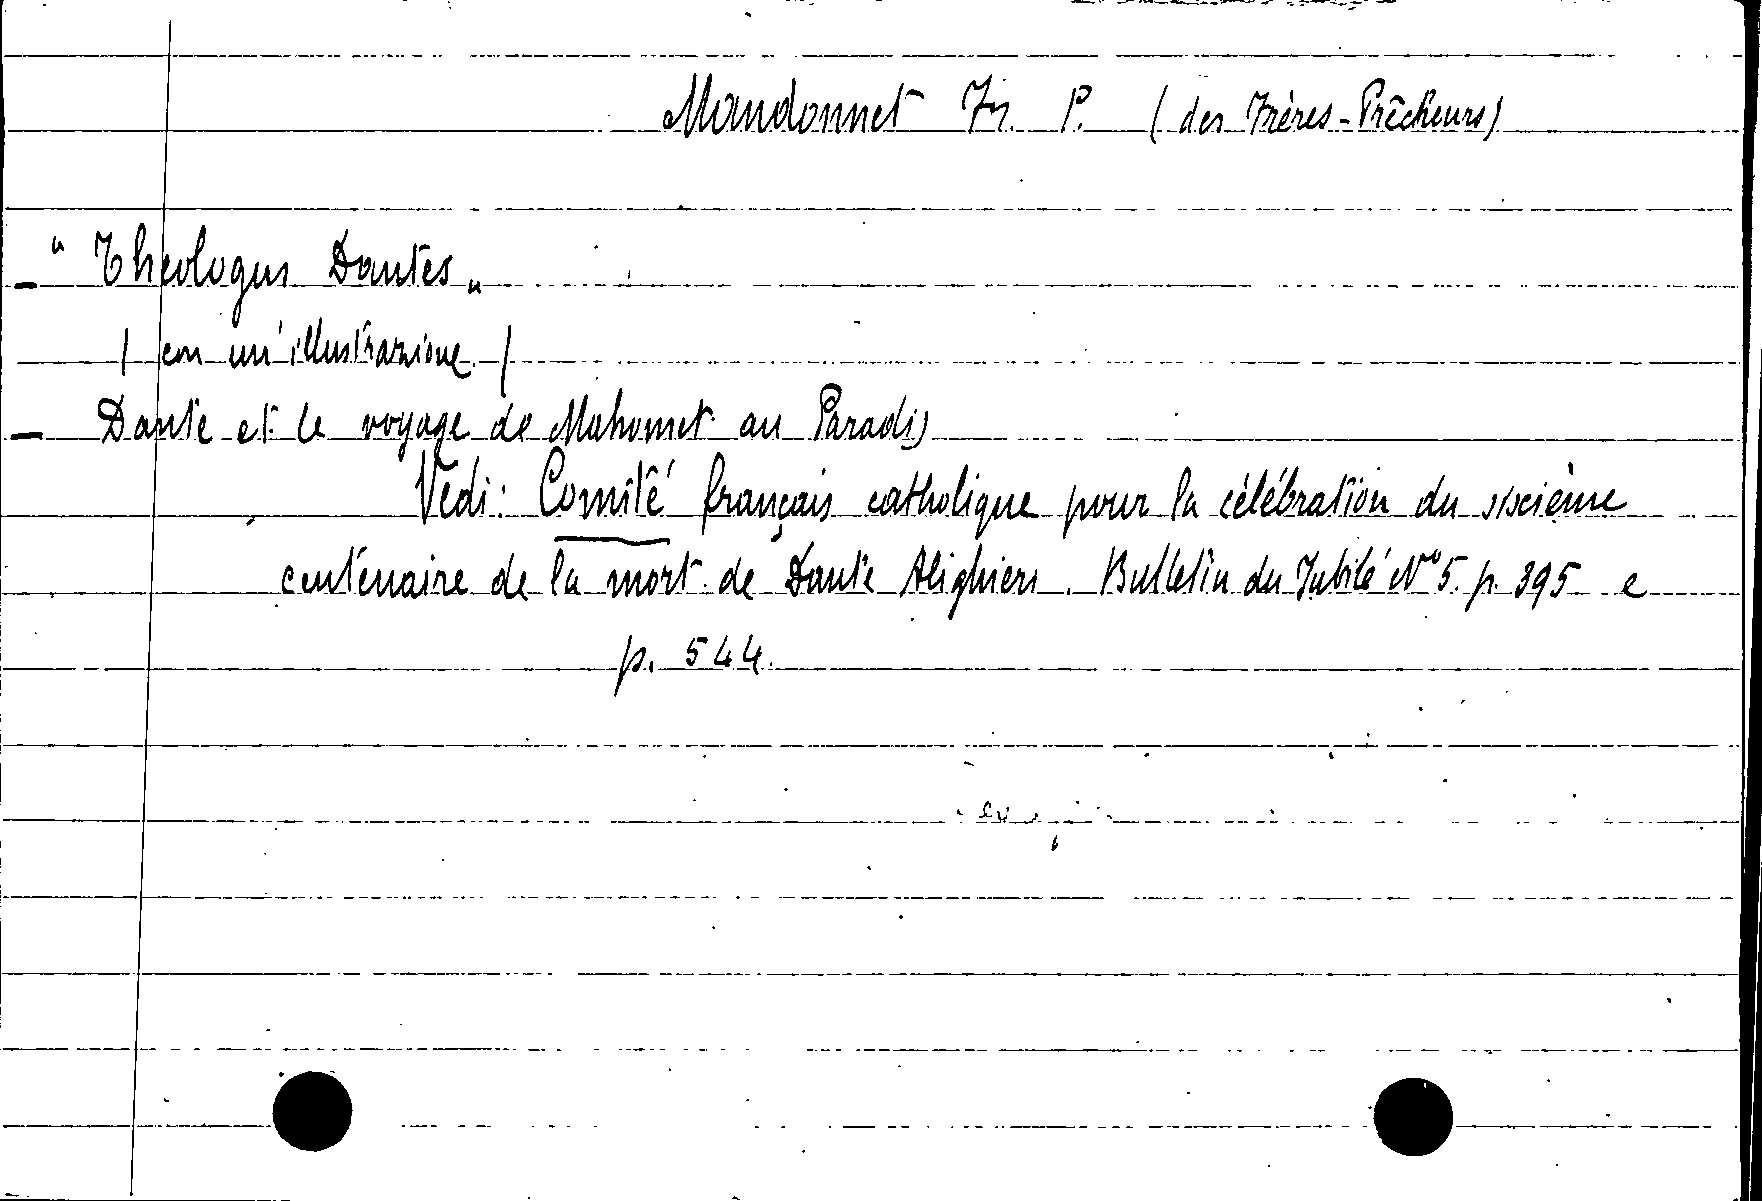 Mandonnet Fr. P. (des Frères-Prêcheurs)
- "Theologus Dantes"
(con un'illustrazione)
- Dante et le voyage de Mahomet au Paradis
Vedi: Comité français catholique pour la célébration du sixième
centenaire de la mort de Dante Alighieri. Bulletin du Jubilé N° 5. p. 395 e
p. 544.